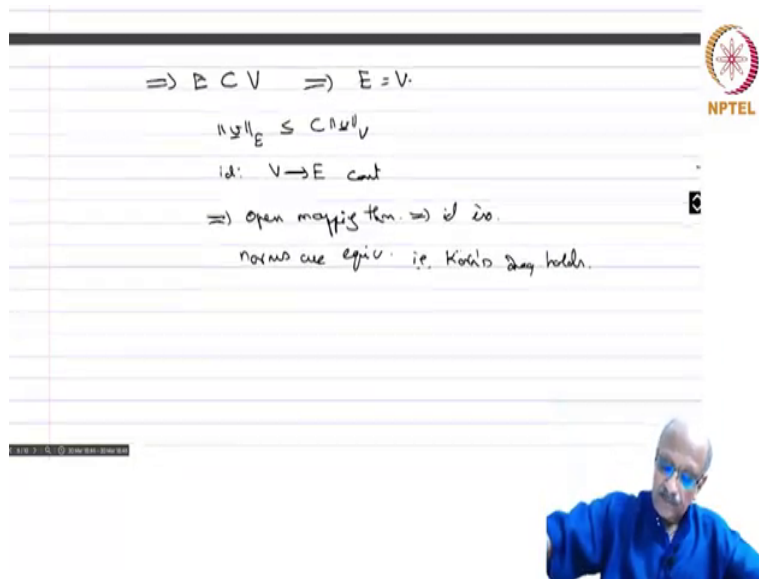 ⇒ E ⊂ V ⇒ E = V.
NPTEL
‖v‖_E ≤ C‖v‖_V
id: V → E cont
⇒ Open mapping thm. ⇒ id iso.
norms are equiv. i.e. Korn's ineq holds.